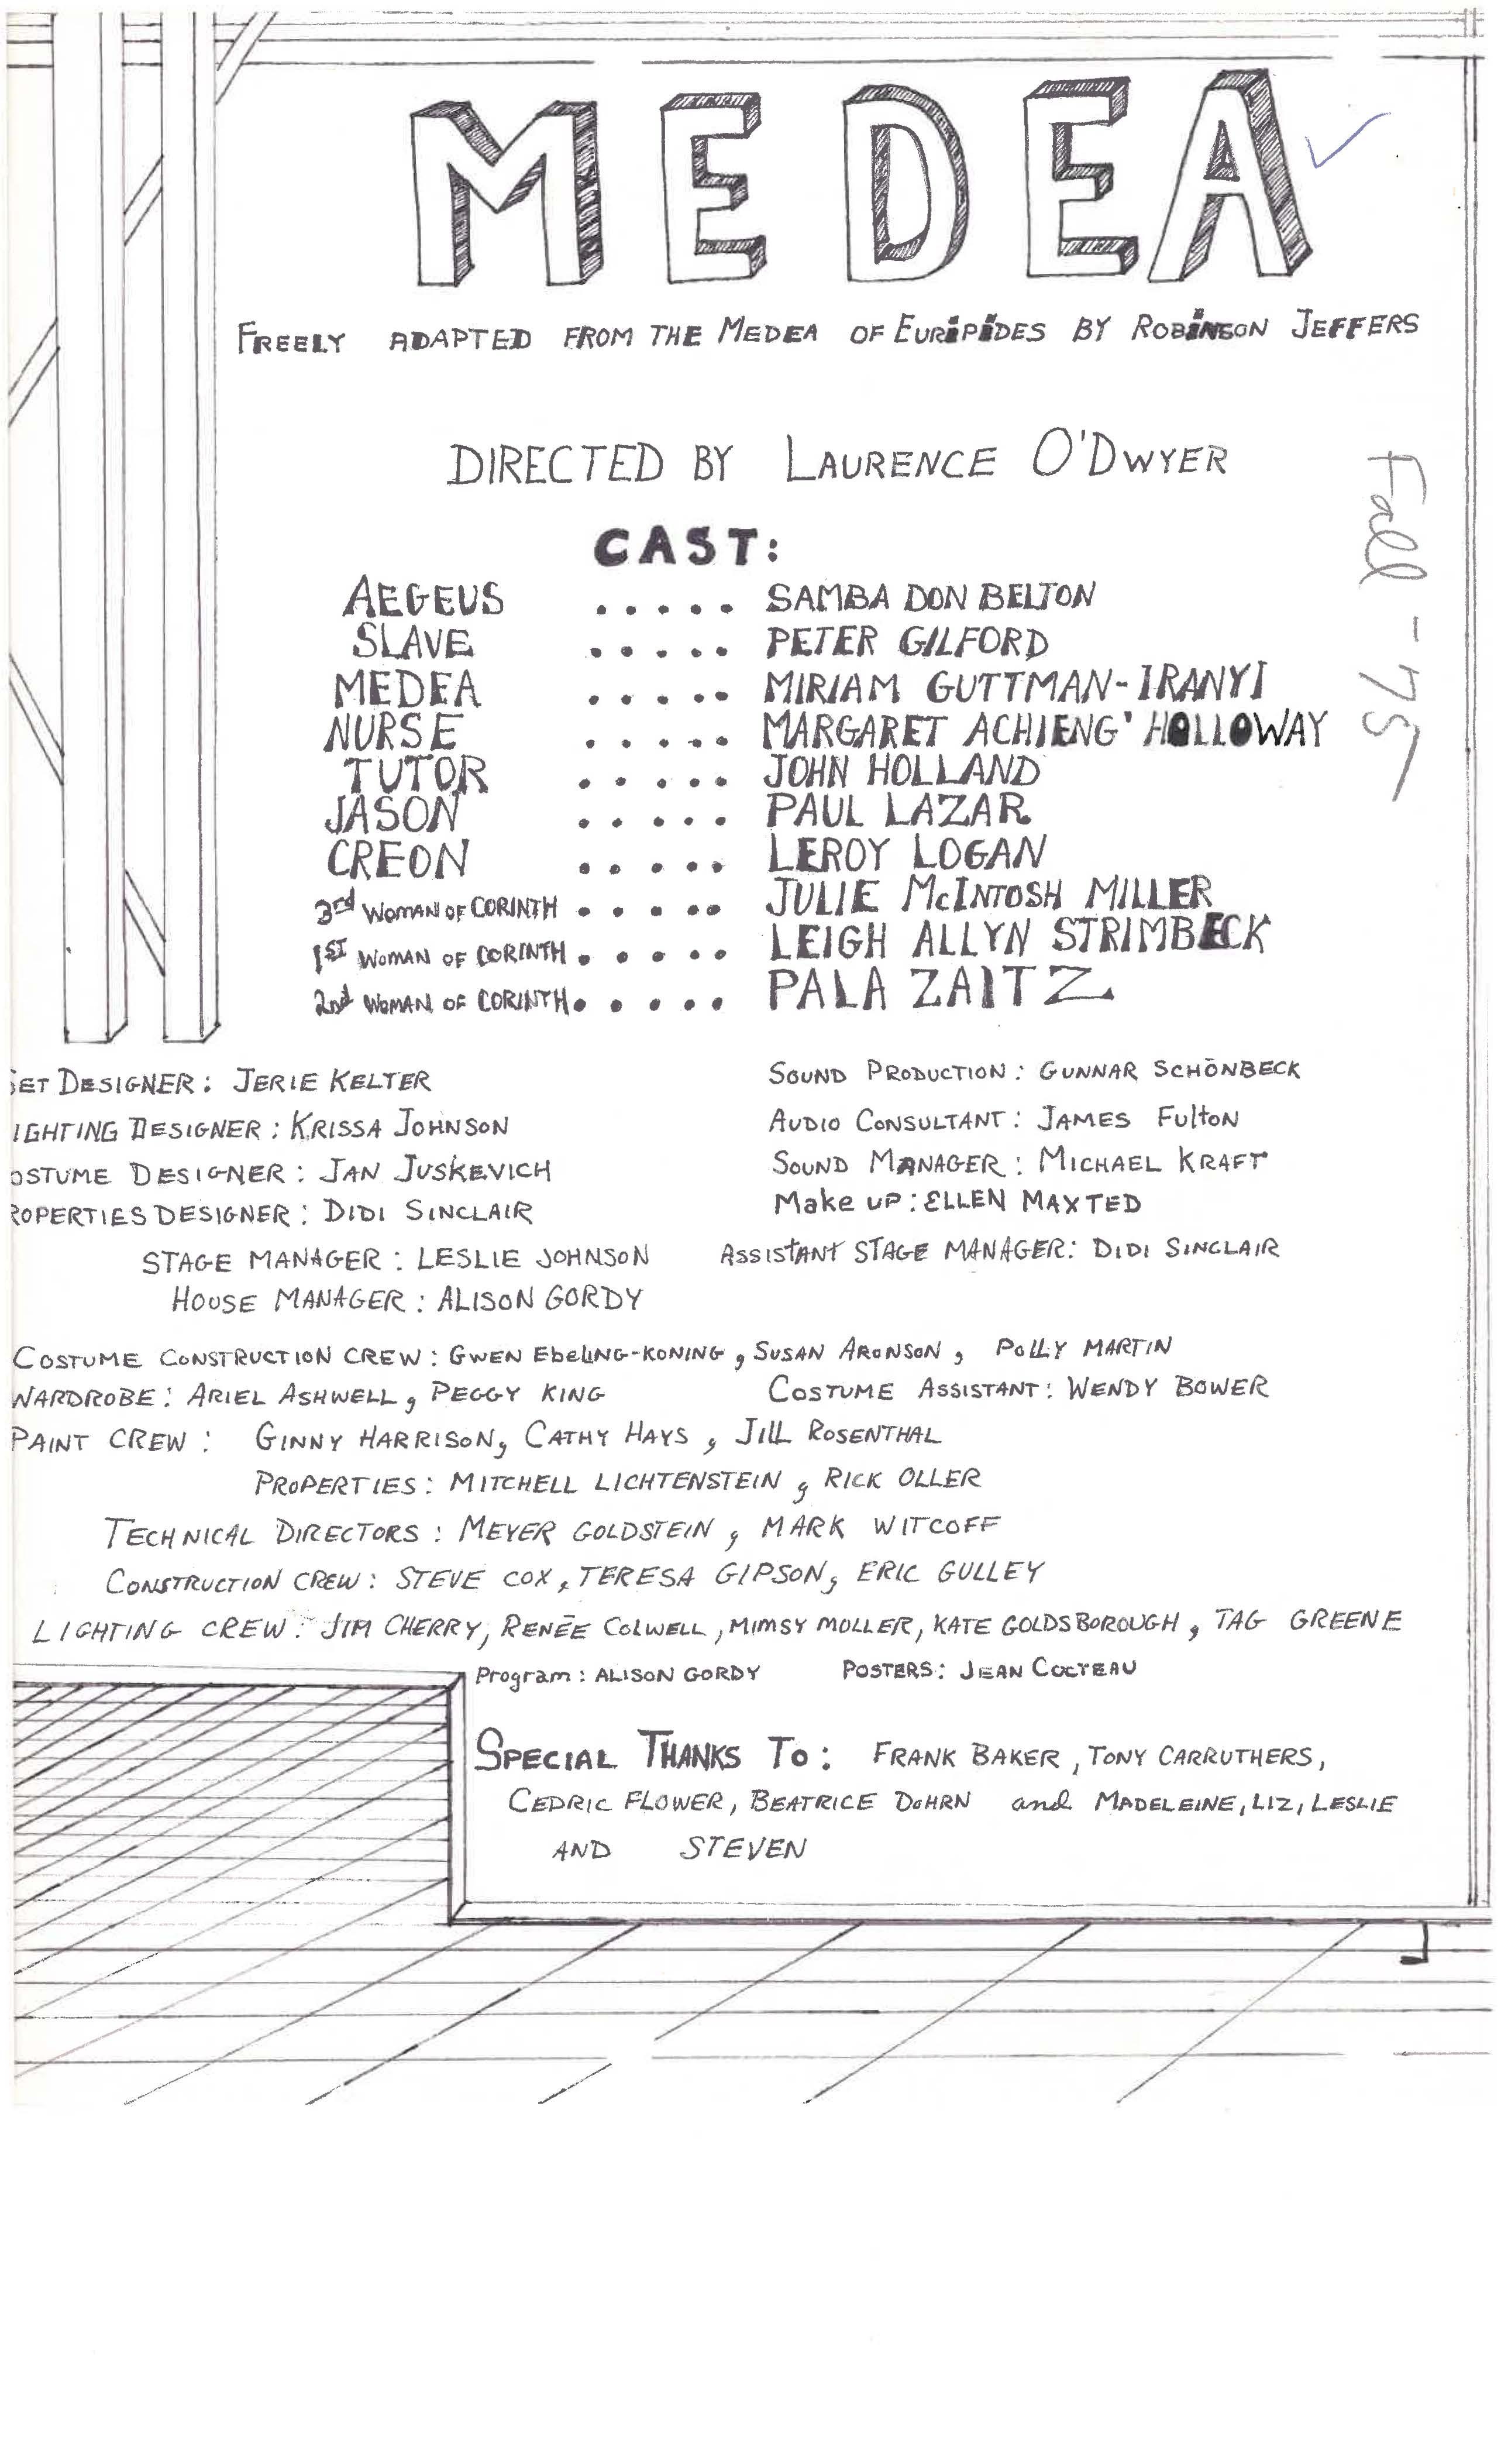 MEDEA
FREELY ADAPTED FROM THE MEDEA OF EURIPIDES BY ROBINSON JEFFERS
DIRECTED BY LAURENCE O'DWYER
Fall - 75
CAST:
AEGEUS ..... SAMBA DON BELTON
SLAVE ..... PETER GILFORD
MEDEA ..... MIRIAM GUTTMAN-IRANYI
NURSE ..... MARGARET ACHIENG' HOLLOWAY
TUTOR ..... JOHN HOLLAND
JASON ..... PAUL LAZAR
CREON ..... LEROY LOGAN
3rd WOMAN OF CORINTH ..... JULIE McINTOSH MILLER
1ST WOMAN OF CORINTH ..... LEIGH ALLYN STRIMBECK
2nd WOMAN OF CORINTH ..... PALA ZAITZ
SET DESIGNER: JERIE KELTER
IGHTING DESIGNER: KRISSA JOHNSON
OSTUME DESIGNER: JAN JUSKEVICH
ROPERTIES DESIGNER: DIDI SINCLAIR
SOUND PRODUCTION: GUNNAR SCHÖNBECK
AUDIO CONSULTANT: JAMES FULTON
SOUND MANAGER: MICHAEL KRAFT
Make UP: ELLEN MAXTED
STAGE MANAGER: LESLIE JOHNSON ASSISTANT STAGE MANAGER: DIDI SINCLAIR
HOUSE MANAGER: ALISON GORDY
COSTUME CONSTRUCTION CREW: GWEN EbeliNG-KONING, SUSAN ARONSON, POLLY MARTIN
WARDROBE: ARIEL ASHWELL, PEGGY KING COSTUME ASSISTANT: WENDY BOWER
PAINT CREW: GINNY HARRISON, CATHY HAYS, JILL ROSENTHAL
PROPERTIES: MITCHELL LICHTENSTEIN, RICK OLLER
TECHNICAL DIRECTORS: MEYER GOLDSTEIN, MARK WITCOFF
CONSTRUCTION CREW: STEVE COX, TERESA GIPSON, ERIC GULLEY
LIGHTING CREW: JIM CHERRY, RENĒE COLWELL, MIMSY MOLLER, KATE GOLDSBOROUGH, TAG GREENE
Program: ALISON GORDY POSTERS: JEAN COCTEAU
SPECIAL THANKS TO: FRANK BAKER, TONY CARRUTHERS,
CEDRIC FLOWER, BEATRICE DOHRN and MADELEINE, LIZ, LESLIE
AND STEVEN